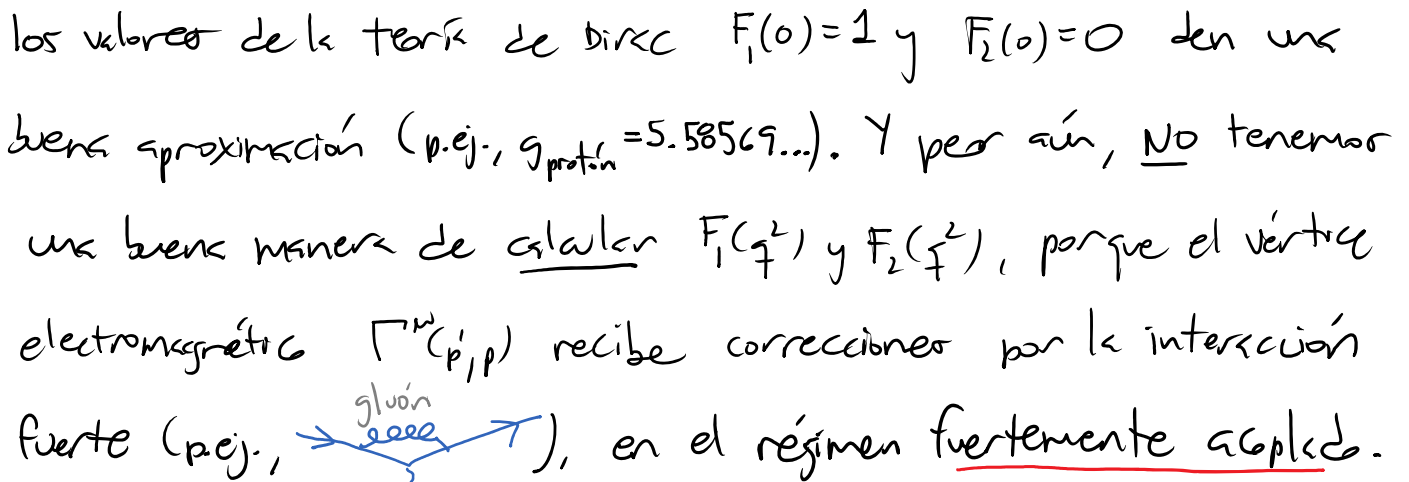 los valores de la teoría de Dirac F₁(0)=1 y F₂(0)=0 den una
buena aproximación (p.ej., g_protón=5.58569...). Y peor aún, NO tenemos
una buena manera de calcular F₁(q²) y F₂(q²), porque el vértice
electromagnético Γ^μ(p',p) recibe correcciones por la interacción
gluón
fuerte (p.ej., ), en el régimen fuertemente acoplado.